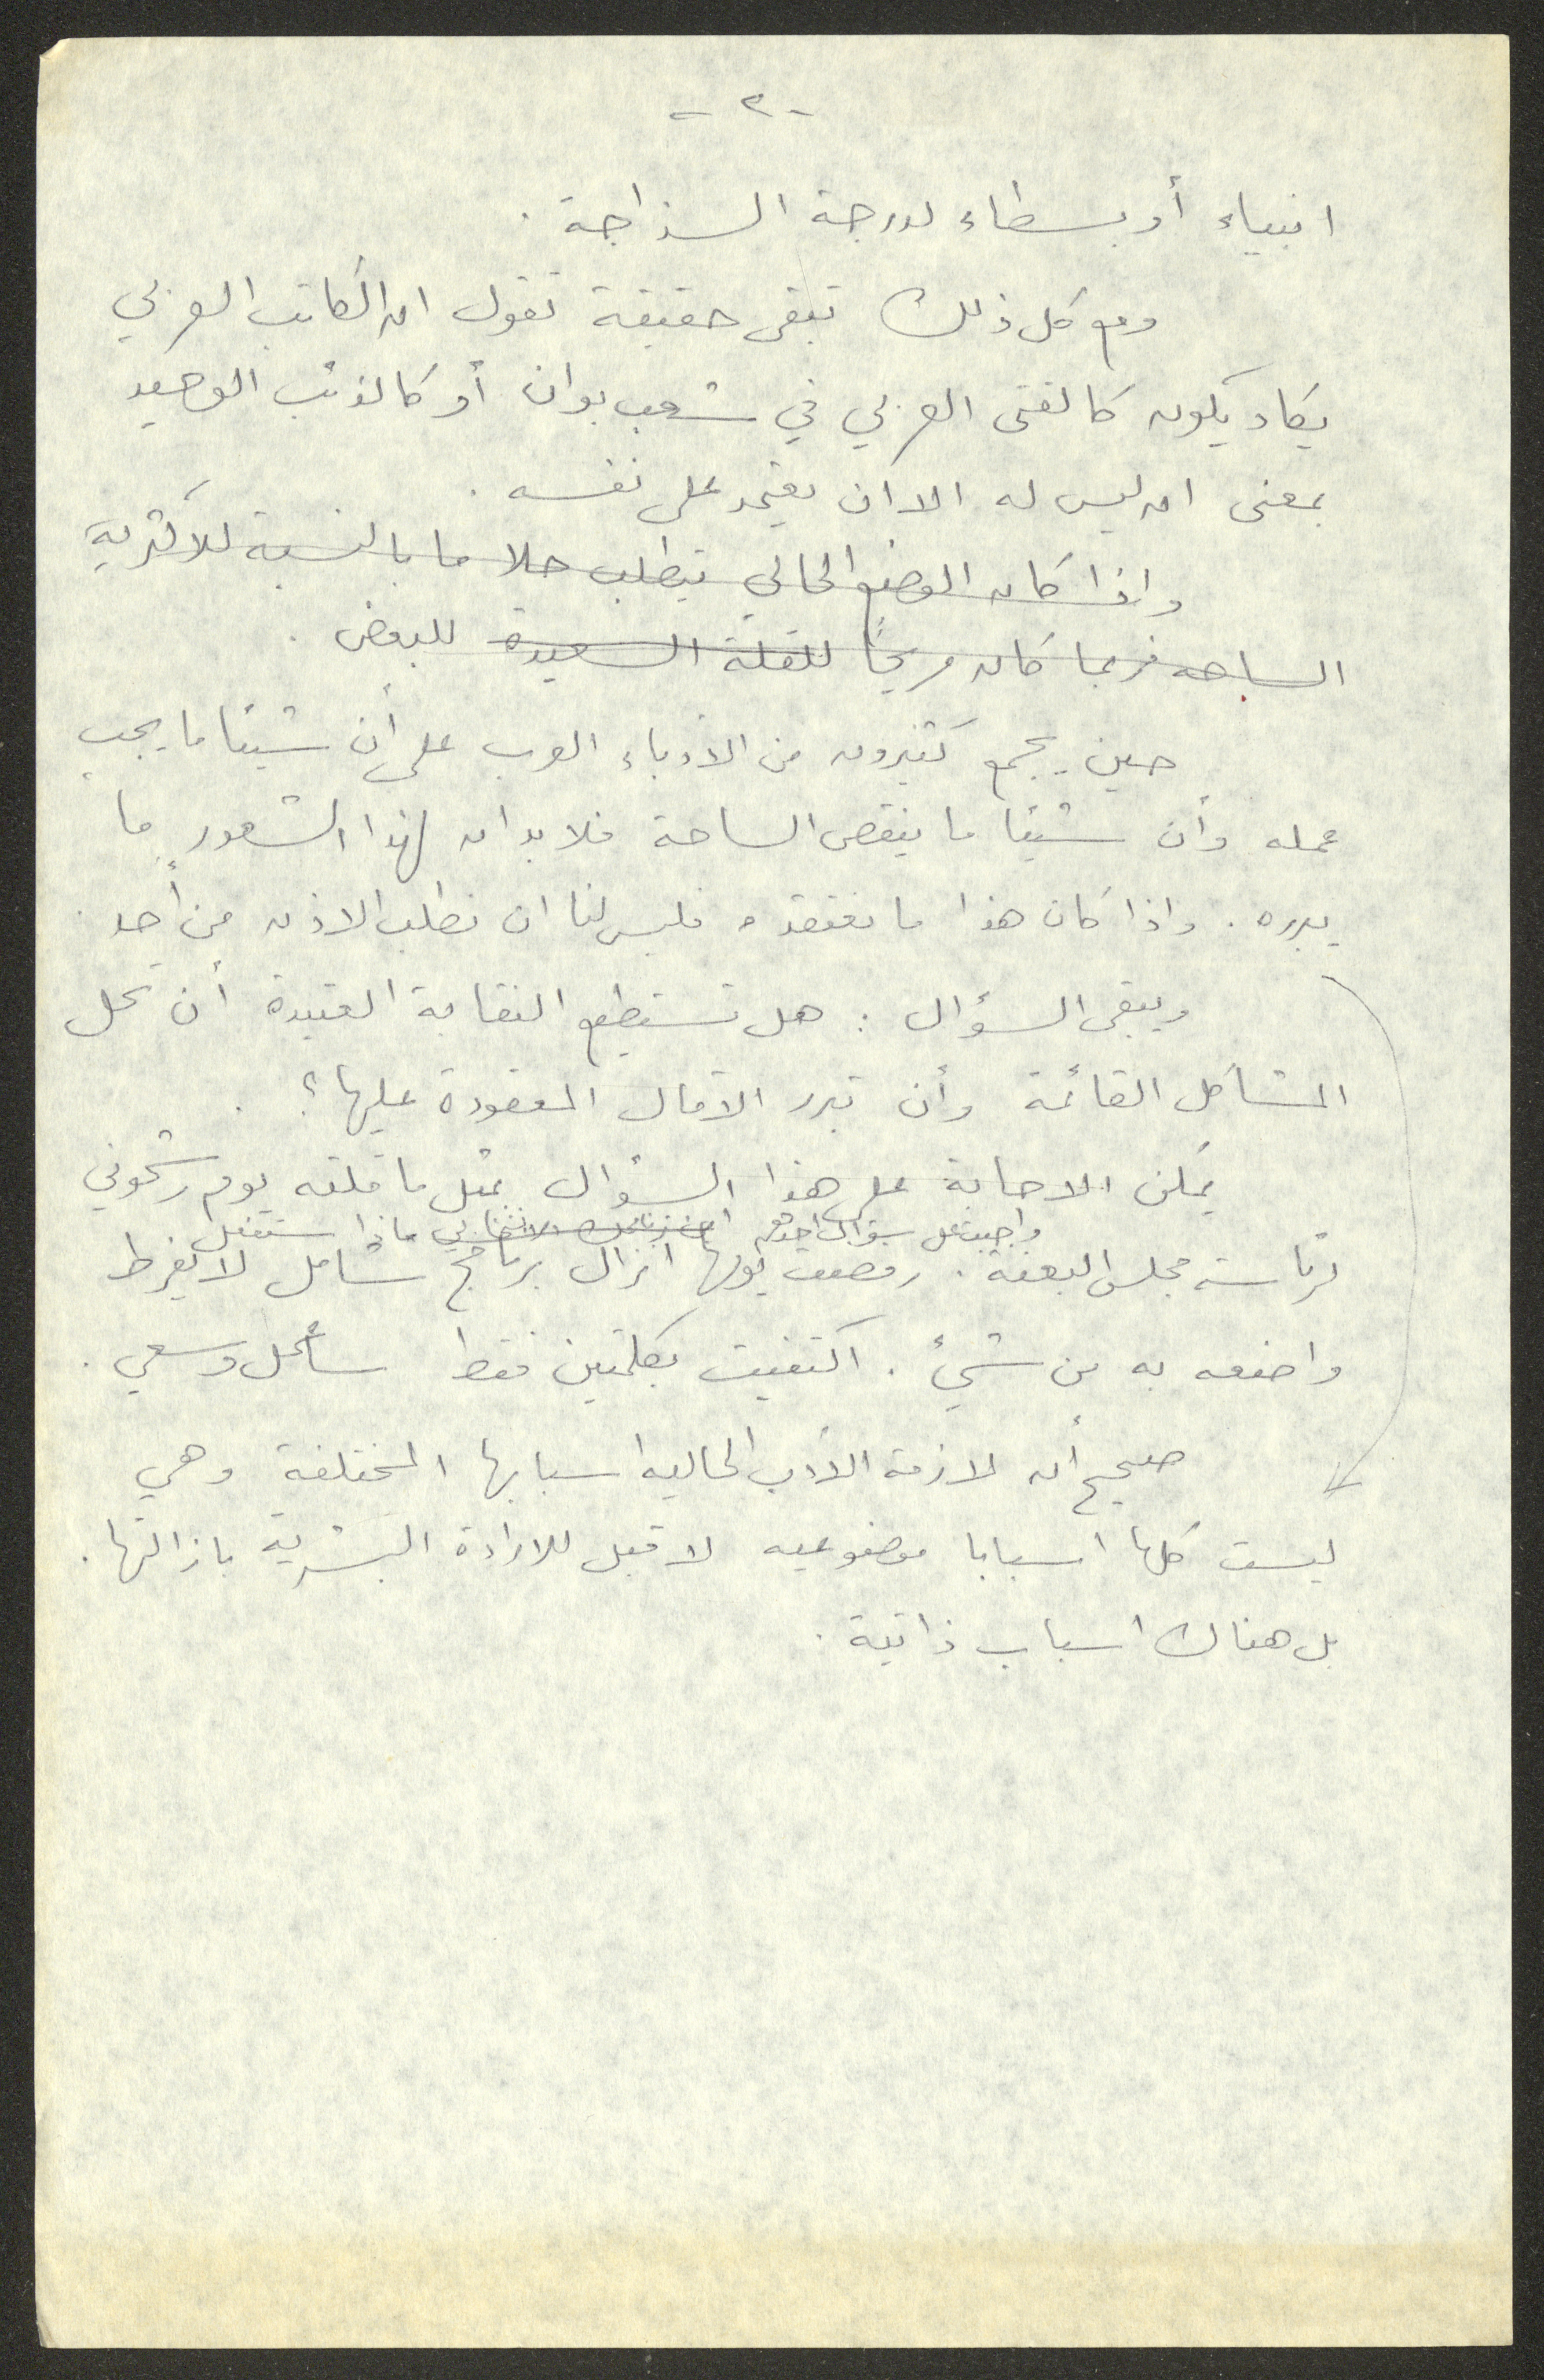 - ٢ -
انبياء أو بسطاء لدرجة السذاجة .
ومع كل ذلك تبقى حقيقة تقول ان الكاتب العربي
يكاد يكون كالفتى العربي في شعب بوان أو كالذئب الوحيد
بمعنى ان ليس له الا ان يعتمد على نفسه .
واذا كان الوضع الحالي يتطلب حلا ما بالنسبة للاكثرية
الساحقه فربما كان مريحًا للقلة السعيدة للبعض .
حين يجمع كثيرون من الادباء العرب على أن شيئا ما يجب
عمله وأن شيئا ما ينقص الساحة فلا بد ان لهذا الشعور ما
يبرره . واذا كان هذا ما نعتقده فليس لنا ان نطلب الاذن من أحد .
ويبقى السؤال : هل تستطيع النقابة العتيدة أن تحل
المشاكل القائمة وأن تبرر الآمال المعقودة عليها ؟ .
يمكن الاجابة على هذا السؤال بمثل ما قلته يوم رشحوني
واجبت على سؤال احدهم الانتخابي ماذا ستفعل
لرئاسة مجلس البعنة . رفضت يومها انزال برنامج شامل لا يفرط
واضعه به من شيئ . اكتفيت بكلمتين فقط سأعمل وسعي .
صحيح أن لازمة الأدب الحاليه اسبابها المختلفة وهي
ليست كلها اسبابا موضوعيه لا قبل للارادة البشرية بازالتها .
بل هناك اسباب ذاتية .